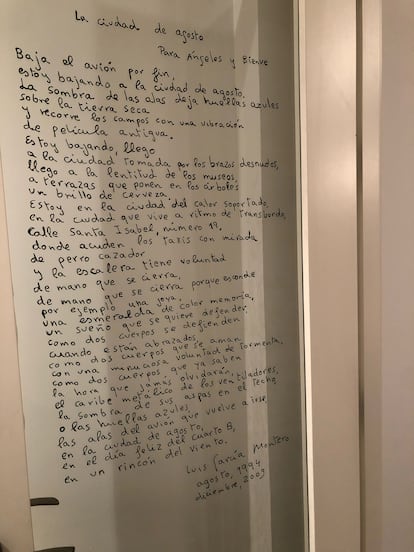 La ciudad de agosto
Para Ángeles y Bienve
Baja el avión por fin,
estoy bajando a la ciudad de agosto.
La sombra de las alas deja huellas azules
sobre la tierra seca
y recorre los campos con una vibración
de película antigua.
Estoy bajando, llego
a la ciudad tomada por los brazos desnudos,
llego a la lentitud de los museos,
a terrazas que ponen en los árboles
un brillo de cerveza.
Estoy en la ciudad del calor soportado,
en la ciudad que vive a ritmo de transbordo,
calle Santa Isabel, número 19,
donde acuden los taxis con mirada
de perro cazador
y la escalera tiene voluntad
de mano que se cierra,
de mano que se cierra porque esconde
por ejemplo una joya,
una esmeralda de color memoria,
un sueño que se quiere defender
como dos cuerpos se defienden
cuando están abrazados,
como dos cuerpos que se aman
con una minuciosa voluntad de tormenta,
como dos cuerpos que ya saben
la hora que jamás olvidarán,
el caribe metálico de los ventiladores,
la sombra de sus aspas en el techo
o las huellas azules,
las alas del avión que vuelve a irse
en la ciudad de agosto,
en el día feliz del cuarto B,
en un rincón del viento.
Luis García Montero
agosto, 1994
diciembre, 2009